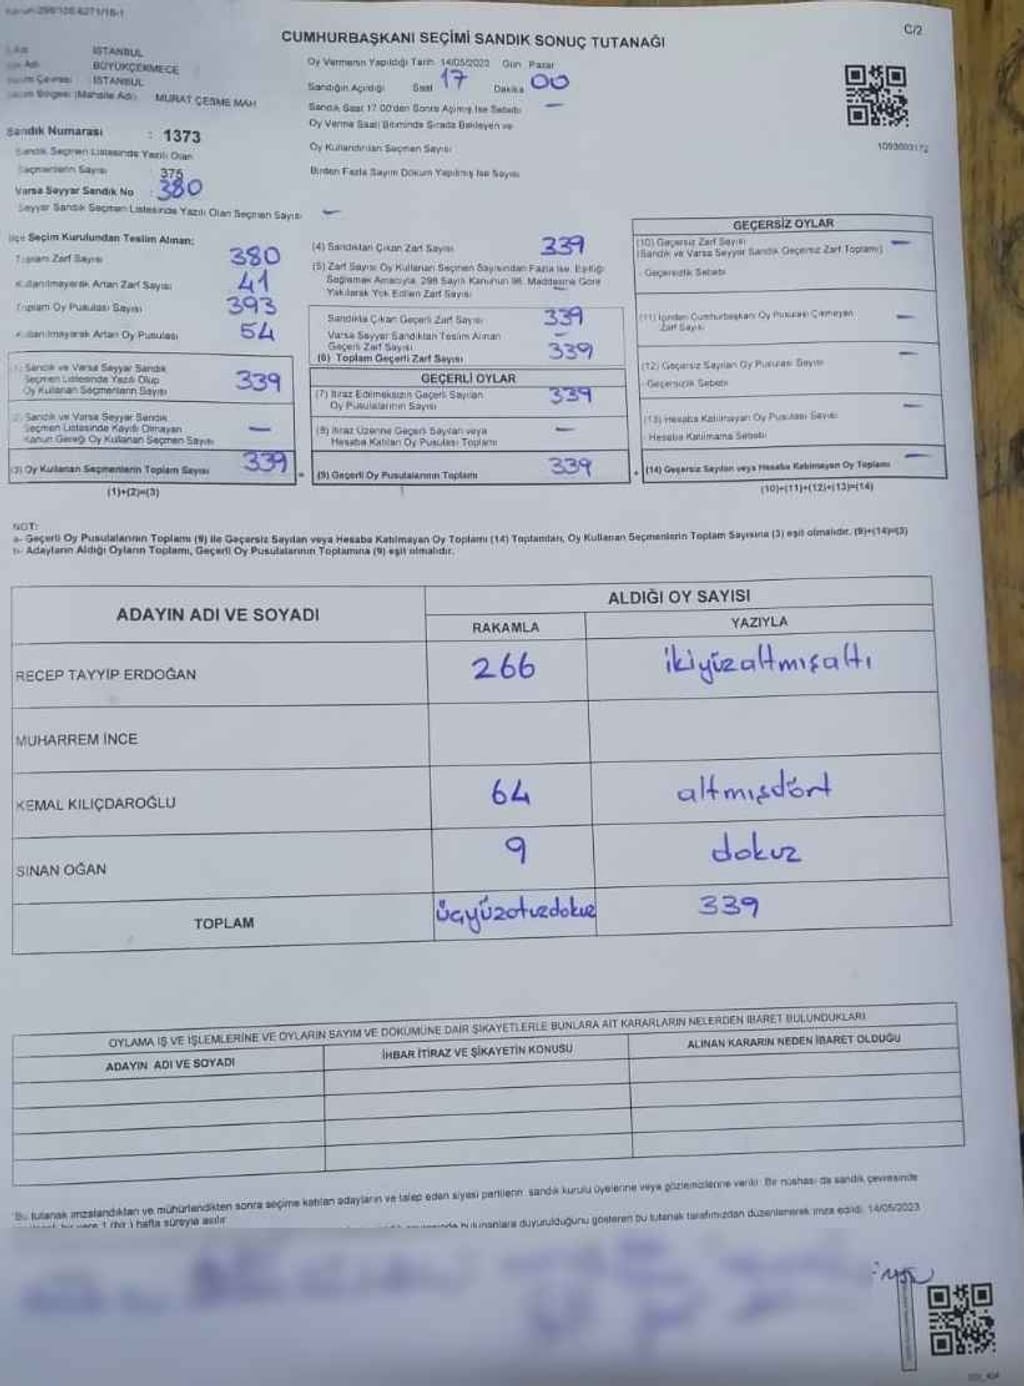 C/2
CUMHURBAŞKANI SEÇİMİ SANDIK SONUÇ TUTANAĞI
İSTANBUL
BÜYÜKÇEKMECE
İSTANBUL
(Mahalle Adı) MURAT ÇEŞME MAH
Oy Vermenin Yapıldığı Tarih 14/05/2023 Gün Pazar
Sandığın Açıldığı Saat 17 Dakika 00
Sandık Saat 17.00'den Sonra Açılmış İse Sebebi —
Oy Verme Saati Bitiminde Sırada Bekleyen ve
Oy Kullandırılan Seçmen Sayısı
Birden Fazla Sayım Döküm Yapılmış İse Sayısı
Sandık Numarası : 1373
Sandık Seçmen Listesinde Yazılı Olan
Seçmenlerin Sayısı 375
Varsa Seyyar Sandık No : 380
Seyyar Sandık Seçmen Listesinde Yazılı Olan Seçmen Sayısı —
İlçe Seçim Kurulundan Teslim Alınan:
Toplam Zarf Sayısı 380
Kullanılmayarak Artan Zarf Sayısı 41
Toplam Oy Pusulası Sayısı 393
Kullanılmayarak Artan Oy Pusulası 54
(1) Sandık ve Varsa Seyyar Sandık
Seçmen Listesinde Yazılı Olup
Oy Kullanan Seçmenlerin Sayısı 339
(2) Sandık ve Varsa Seyyar Sandık
Seçmen Listesinde Kayıtlı Olmayan
Kanun Gereği Oy Kullanan Seçmen Sayısı —
(3) Oy Kullanan Seçmenlerin Toplam Sayısı 339
(1)+(2)=(3)
(4) Sandıktan Çıkan Zarf Sayısı 339
(5) Zarf Sayısı Oy Kullanan Seçmen Sayısından Fazla İse, Eşitliği
Sağlamak Amacıyla, 298 Sayılı Kanunun 98. Maddesine Göre
Yakılarak Yok Edilen Zarf Sayısı —
Sandıkta Çıkan Geçerli Zarf Sayısı 339
Varsa Seyyar Sandıktan Teslim Alınan
Geçerli Zarf Sayısı —
(6) Toplam Geçerli Zarf Sayısı 339
GEÇERLİ OYLAR
(7) İtiraz Edilmeksizin Geçerli Sayılan
Oy Pusulalarının Sayısı 339
(8) İtiraz Üzerine Geçerli Sayılan veya
Hesaba Katılan Oy Pusulası Toplamı —
(9) Geçerli Oy Pusulalarının Toplamı 339
GEÇERSİZ OYLAR
(10) Geçersiz Zarf Sayısı
(Sandık ve Varsa Seyyar Sandık Geçersiz Zarf Toplamı) —
Geçersizlik Sebebi
(11) İçinden Cumhurbaşkanı Oy Pusulası Çıkmayan
Zarf Sayısı —
(12) Geçersiz Sayılan Oy Pusulası Sayısı —
Geçersizlik Sebebi
(13) Hesaba Katılmayan Oy Pusulası Sayısı —
Hesaba Katılmama Sebebi
(14) Geçersiz Sayılan veya Hesaba Katılmayan Oy Toplamı —
(10)+(11)+(12)+(13)=(14)
NOT:
a- Geçerli Oy Pusulalarının Toplamı (9) ile Geçersiz Sayılan veya Hesaba Katılmayan Oy Toplamı (14) Toplamları, Oy Kullanan Seçmenlerin Toplam Sayısına (3) eşit olmalıdır. (9)+(14)=(3)
b- Adayların Aldığı Oyların Toplamı, Geçerli Oy Pusulalarının Toplamına (9) eşit olmalıdır.
ADAYIN ADI VE SOYADI
ALDIĞI OY SAYISI
RAKAMLA YAZIYLA
RECEP TAYYİP ERDOĞAN 266 ikiyüzaltmışaltı
MUHARREM İNCE
KEMAL KILIÇDAROĞLU 64 altmışdört
SİNAN OĞAN 9 dokuz
TOPLAM üçyüzotuzdokuz 339
OYLAMA İŞ VE İŞLEMLERİNE VE OYLARIN SAYIM VE DÖKÜMÜNE DAİR ŞİKAYETLERLE BUNLARA AİT KARARLARIN NELERDEN İBARET BULUNDUKLARI
ADAYIN ADI VE SOYADI İHBAR İTİRAZ VE ŞİKAYETİN KONUSU ALINAN KARARIN NEDEN İBARET OLDUĞU
Bu tutanak imzalandıktan ve mühürlendikten sonra seçime katılan adayların ve talep eden siyasi partilerin sandık kurulu üyelerine veya gözlemcilerine verilir. Bir nüshası da sandık çevresinde
1 (bir) hafta süreyle asılır
bulunanlara duyurulduğunu gösteren bu tutanak tarafımızdan düzenlenerek imza edildi. 14/05/2023